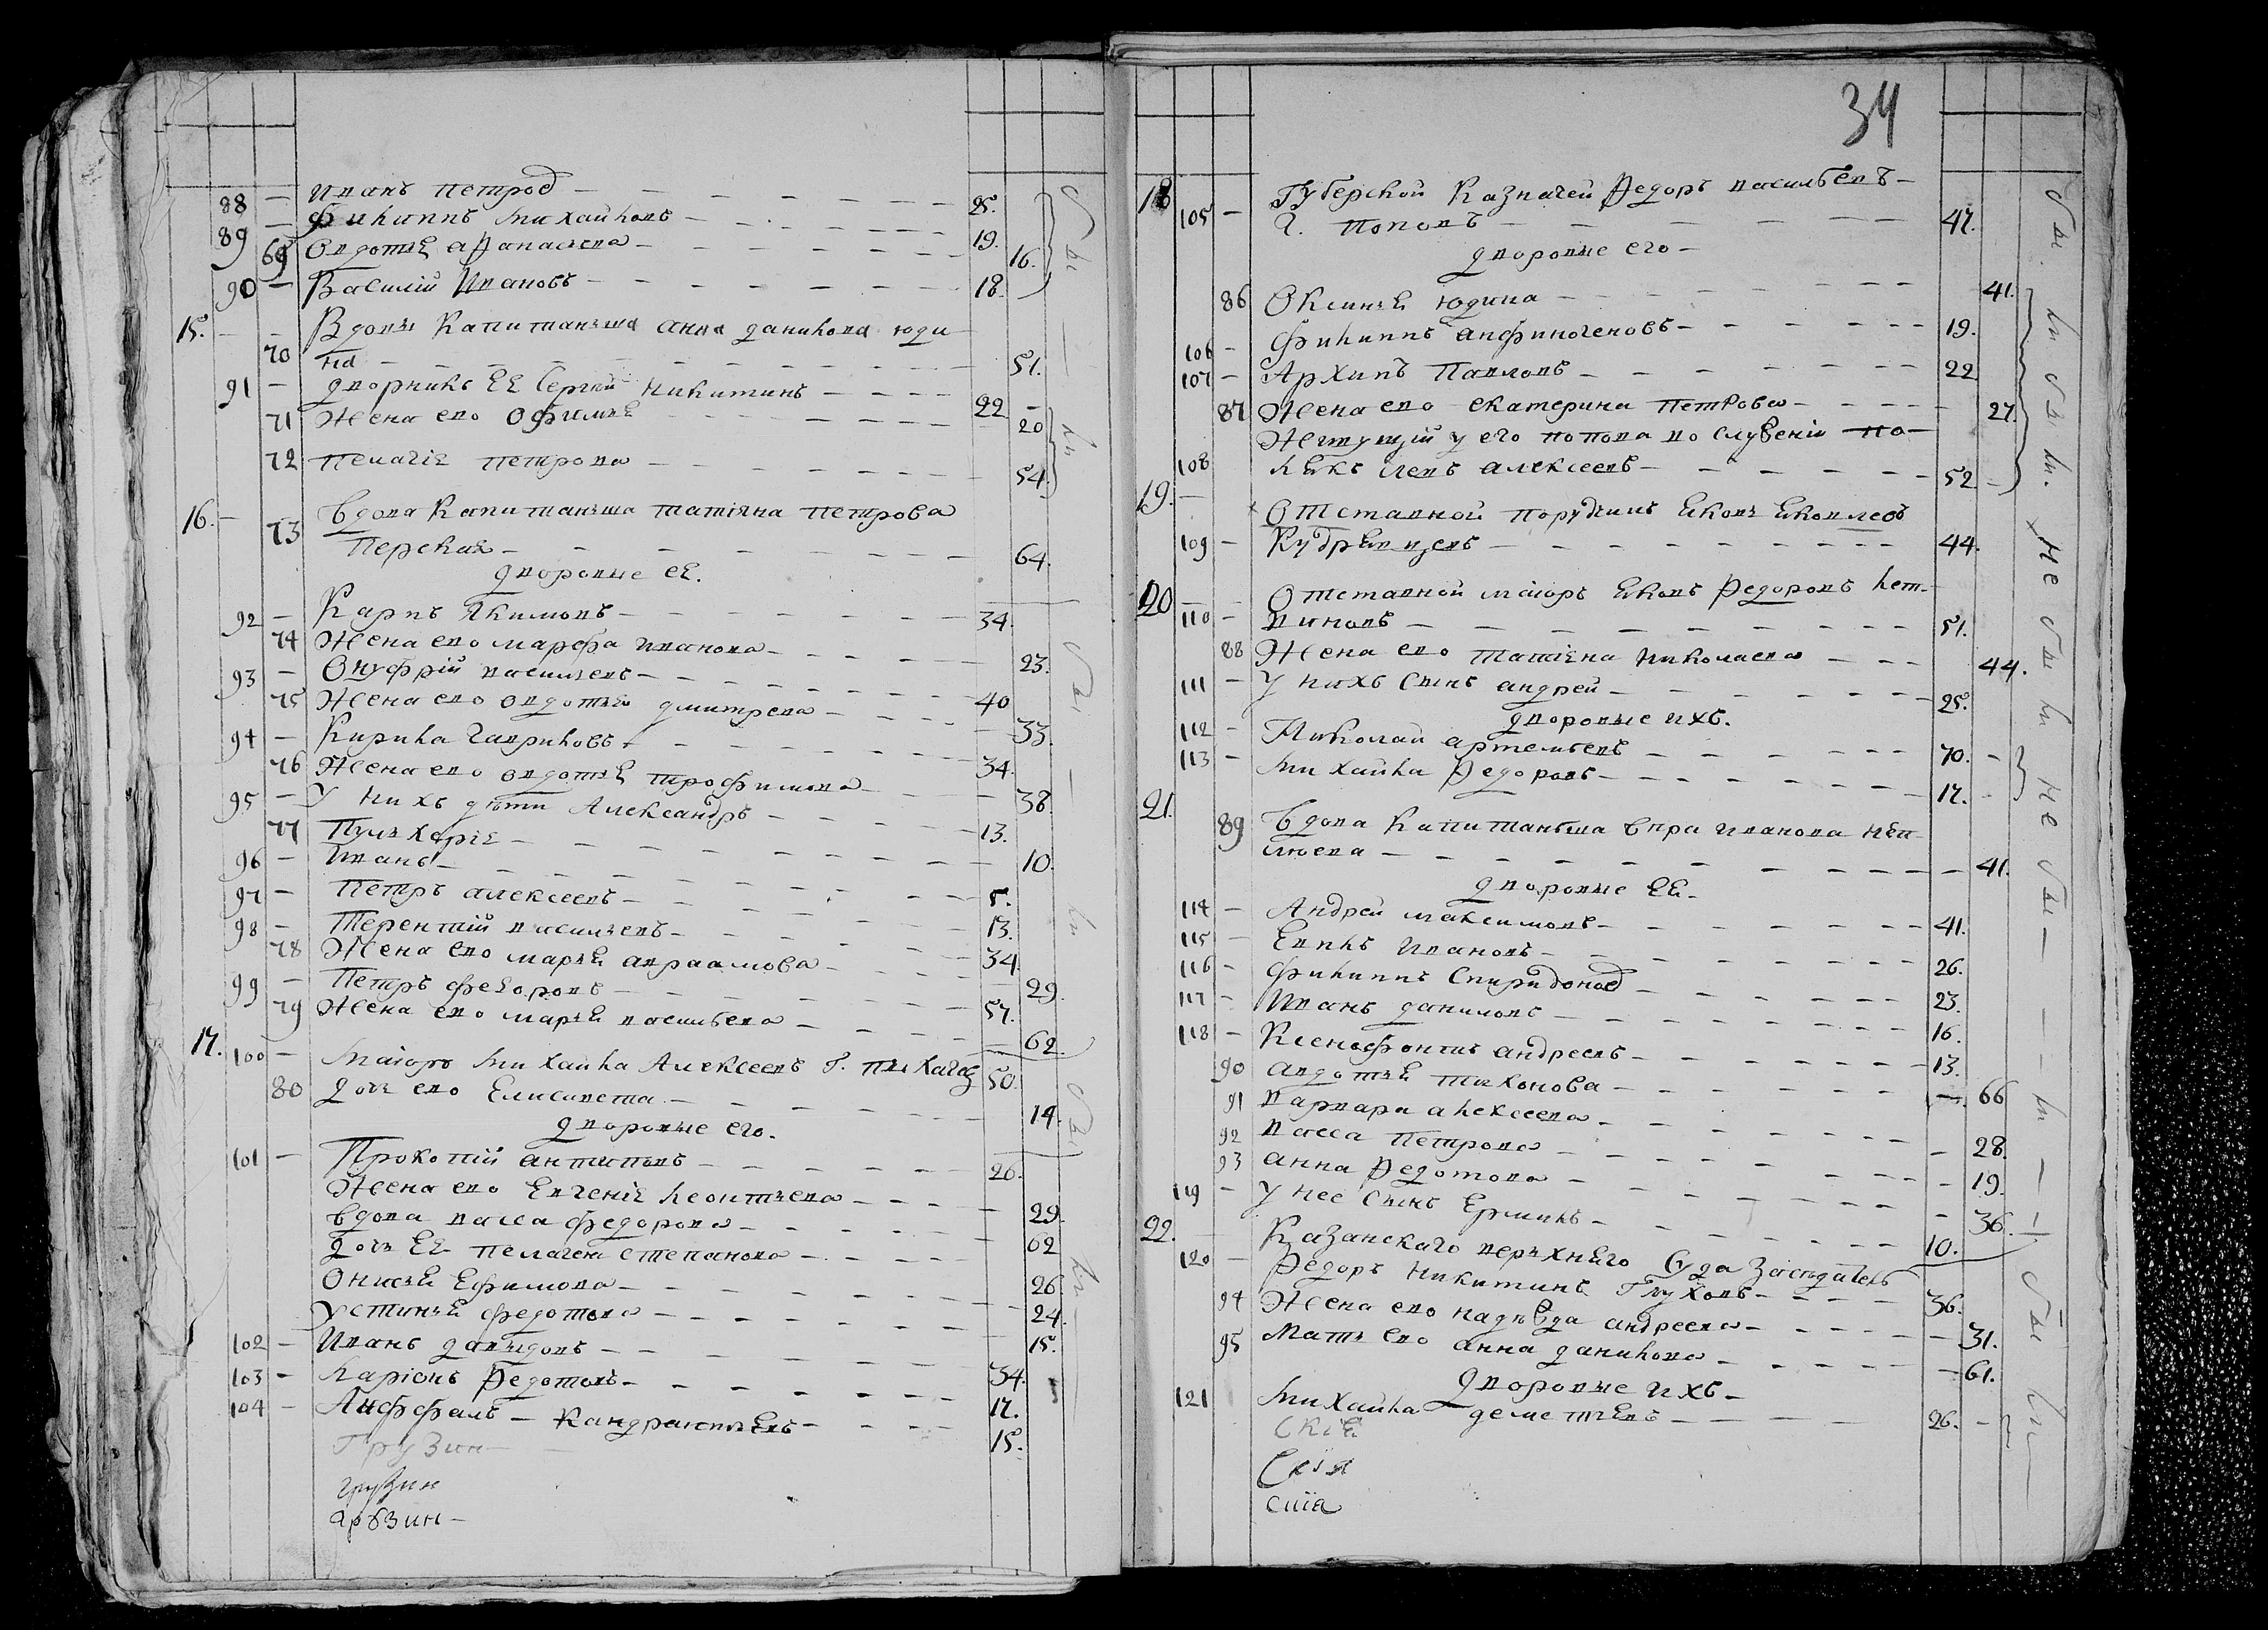 88 — Иванъ Петров — 25.
89 — Филиппъ Михайловъ — 19.
69 Овдотья Афанасьева — 16.
90 — Василий Ивановъ — 18.
15. — Вдова Капитанша Анна Данилова Юди
70 на — 51.
91 — Дворникъ ея Сергей Никитинъ — 22
71 Жена ево Офимья — 20
72 Пелагия Петрова — 54.
16. — 73 Вдова Капитанша Татияна Петрова
Перская — 64.
Дворовые ея.
92 — Карпъ Якимовъ — 34.
74 Жена ево Марфа Иванова — 23.
93 — Онуфрій Васильевъ — 40
75 Жена ево Овдотья Дмитрева — 33.
94 — Кирила Гавриловъ — 34.
76 Жена ево Овдотья Трофимова — 38.
95 — У нихъ дѣти Александръ — 13.
77 Пульхерія — 10.
96 — Иванъ — 5.
97 — Петръ Алексеевъ — 13.
98 — Терентій Васильевъ — 34.
78 Жена ево Марья Авраамова — 29.
99 — Петръ Федоровъ — 57.
79 Жена ево Марья Васильева — 62.
17. 100 — Маіоръ Михайла Алексеевъ Г. 50.
80 Дочь ево Елисавета — 14.
Дворовые его.
101 — Прокопій Антиповъ — 26.
Жена ево Евгенія Леонтьева — 29.
Вдова Васса Федорова — 62
Дочь ея Пелагея Степанова — 26
Онисья Ефимова — 24.
Устинья Федотова — 15.
102 — Иванъ Давыдовъ — 34.
103 — Ларіонъ Федотовъ — 17.
104 — Кандратьевъ — 15.
Грузин
грузин
34
18 Губерской Казначей Федоръ Васильевъ —
105 — Г. Поповъ — 47.
Дворовые его —
86 Оксинья Юдина — 41.
106 — Филиппъ Анфиногеновъ — 19.
107 — Архипъ Павловъ — 22
87 Жена ево Екатерина Петрова — 27.
Жительство у его Попова по служеніи По
108 лякъ Алексеевъ — 52
19. — Отставной Порутчикъ Яковъ Яковлевъ
109 — Кудрявцевъ — 44.
20 — Отставной Маіоръ Яковъ Федоровъ Лет
110 — виновъ — 51.
88 Жена ево Татьяна Николаева — 44.
111 — У нихъ Сынъ Андрей — 25.
Дворовые ихъ.
112 — Николай Артемьевъ — 70.
113 — Михайла Федоровъ — 17.
21. 89 Вдова Капитанша Вера Иванова Неп
люева — 41.
Дворовые ея.
114 — Андрей Максимовъ — 41.
115 — Ивановъ — 26.
116 — Филиппъ Спиридонов — 23.
117 — Иванъ Даниловъ — 16.
118 — Ксенофонтъ Андреевъ — 13.
90 Авдотья Тихонова — 66
91 Варвара Алексеева — 28.
92 Васса Петрова — 19.
93 Анна Федотова — 36.
119 — У нее Сынъ Ермилъ — 10.
22. Казанскаго верхняго Суда Заседатель
120 — Федоръ Никитинъ Глуховъ — 36.
94 Жена ево Надежда Андреева — 31.
95 Мать ево Анна Данилова — 61.
Дворовые ихъ —
121 Михайла Деметьевъ — 26.